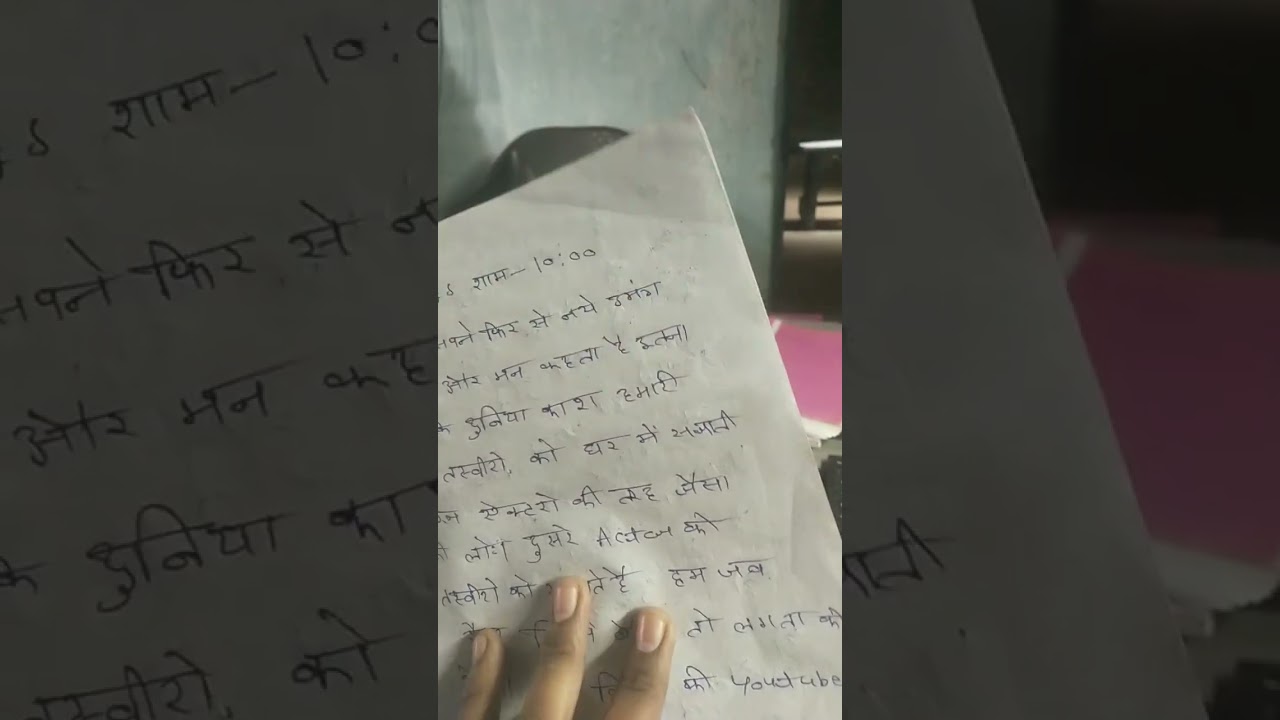 शाम - 10:00
सपने फिर से नये उमंग
और मन कहता है इतना
दुनिया काश हमारी
तस्वीरो, को घर में सजाती
एक्टरो की तरह जैसा
लोग दुसरे Actor को
तस्वीरो को है हम जब
तो लगता की
की youtube